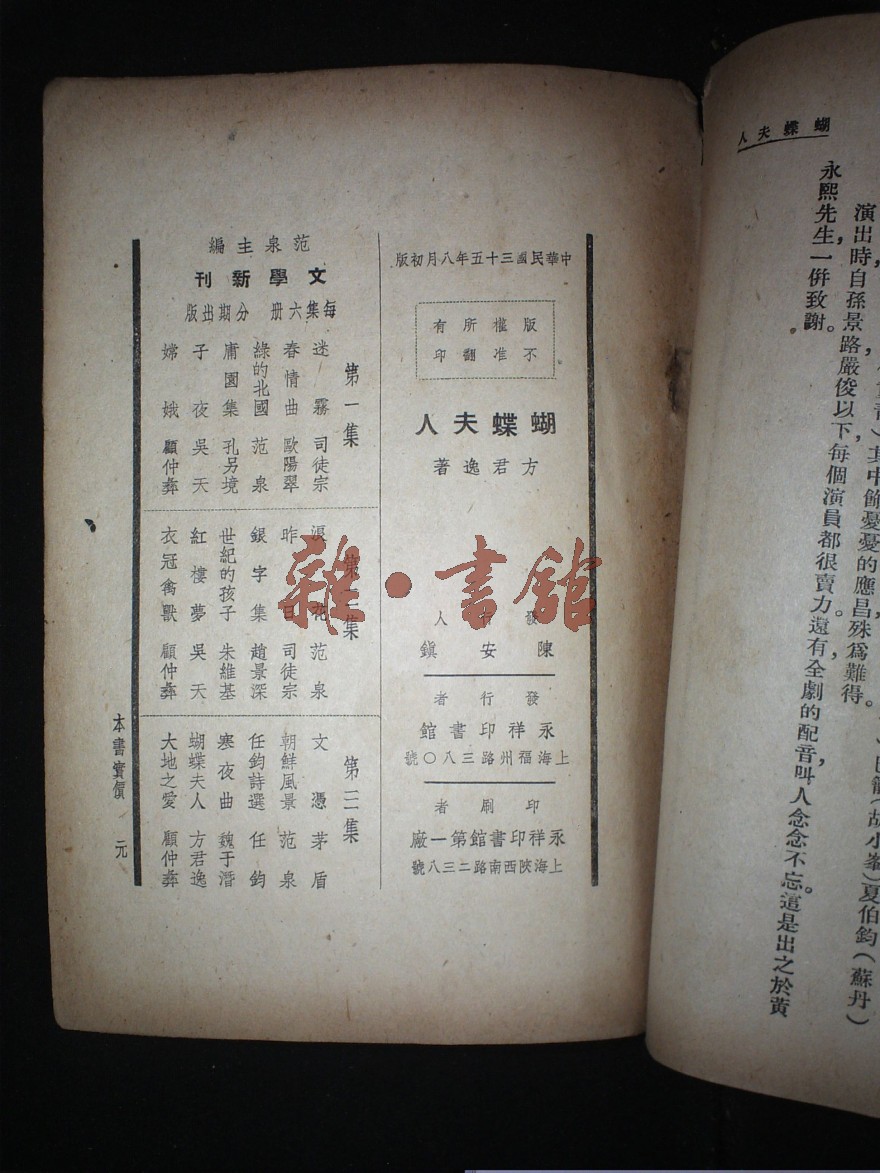 蝴蝶夫人
演出時自孫景路嚴俊以下每個演員都很賣力。還有全劇的配音,叫人念念不忘。這是出之於黃
永熙先生,一併致謝。
中華民國三十五年八月初版
版權所有
不准翻印
蝴蝶夫人
方君逸著
發行人
陳安鎮
發行者
永祥印書館
上海福州路三八〇號
印刷者
永祥印書館第一廠
上海陝西南路二三八號
范泉主編
文學新刊
每集六册 分期出版
第一集
迷霧 司徒宗
春情曲 歐陽翠
綠的北國 范泉
庸園集 孔另境
子夜 吳天
嫦娥 顧仲彝
第二集
浪花 范泉
昨日 司徒宗
銀字集 趙景深
世紀的孩子 朱維基
紅樓夢 吳天
衣冠禽獸 顧仲彝
第三集
文憑 茅盾
朝鮮風景 范泉
任鈞詩選 任鈞
寒夜曲 魏于潛
蝴蝶夫人 方君逸
大地之愛 顧仲彝
本書實價 元
雜·書館